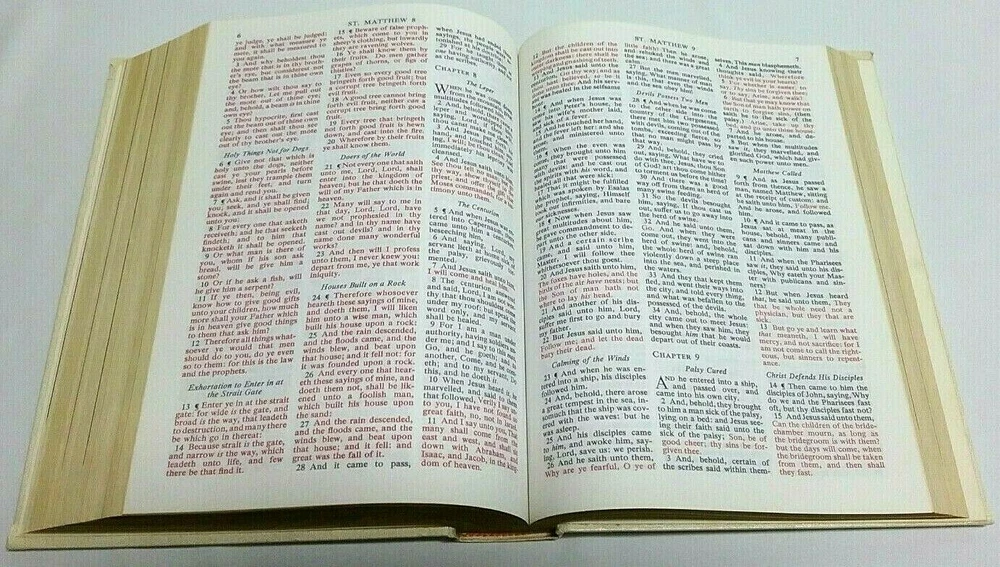 6
ST. MATTHEW 8
ye judge, ye shall be judged:
and with what measure ye
mete, it shall be measured to
you again.
3 And why beholdest thou
the mote that is in thy broth-
er's eye, but considerest not
the beam that is in thine own
eye?
4 Or how wilt thou say to
thy brother, Let me pull out
the mote out of thine eye;
and, behold, a beam is in thine
own eye?
5 Thou hypocrite, first cast
out the beam out of thine own
eye; and then shalt thou see
clearly to cast out the mote
out of thy brother's eye.
Holy Things Not for Dogs
6 ¶ Give not that which is
holy unto the dogs, neither
cast ye your pearls before
swine, lest they trample them
under their feet, and turn
again and rend you.
7 ¶ Ask, and it shall be given
you; seek, and ye shall find;
knock, and it shall be opened
unto you:
8 For every one that asketh
receiveth; and he that seeketh
findeth; and to him that
knocketh it shall be opened.
9 Or what man is there of
you, whom if his son ask
bread, will he give him a
stone?
10 Or if he ask a fish, will
he give him a serpent?
11 If ye then, being evil,
know how to give good gifts
unto your children, how much
more shall your Father which
is in heaven give good things
to them that ask him?
12 Therefore all things what-
soever ye would that men
should do to you, do ye even
so to them: for this is the law
and the prophets.
Exhortation to Enter in at
the Strait Gate
13 ¶ Enter ye in at the strait
gate: for wide is the gate, and
broad is the way, that leadeth
to destruction, and many there
be which go in thereat:
14 Because strait is the gate,
and narrow is the way, which
leadeth unto life, and few
there be that find it.
15 ¶ Beware of false proph-
ets, which come to you in
sheep's clothing, but inwardly
they are ravening wolves.
16 Ye shall know them by
their fruits. Do men gather
grapes of thorns, or figs of
thistles?
17 Even so every good tree
bringeth forth good fruit; but
a corrupt tree bringeth forth
evil fruit.
18 A good tree cannot bring
forth evil fruit, neither can a
corrupt tree bring forth good
fruit.
19 Every tree that bringeth
not forth good fruit is hewn
down, and cast into the fire.
20 Wherefore by their fruits
ye shall know them.
Doers of the World
21 ¶ Not every one that saith
unto me, Lord, Lord, shall
enter into the kingdom of
heaven; but he that doeth the
will of my Father which is in
heaven.
22 Many will say to me in
that day, Lord, Lord, have
we not prophesied in thy
name? and in thy name have
cast out devils? and in thy
name done many wonderful
works?
23 And then will I profess
unto them, I never knew you:
depart from me, ye that work
iniquity.
Houses Built on a Rock
24 ¶ Therefore whosoever
heareth these sayings of mine,
and doeth them, I will liken
him unto a wise man, which
built his house upon a rock:
25 And the rain descended,
and the floods came, and the
winds blew, and beat upon
that house; and it fell not: for
it was founded upon a rock.
26 And every one that hear-
eth these sayings of mine, and
doeth them not, shall be lik-
ened unto a foolish man,
which built his house upon
the sand:
27 And the rain descended,
and the floods came, and the
winds blew, and beat upon
that house; and it fell: and
great was the fall of it.
28 And it came to pass,
when Jesus had ended
sayings, the people
CHAPTER 8
The Leper
WHEN he was
multitudes followed
2 And, behold,
3 And Jesus
cleansed.
4 And Jesus
See thou tell no man
thy way, shew
priest, and offer
Moses commanded,
timony unto them.
The Centurion
5 ¶ And when Jesus
tered into Capernaum,
came unto him
beseeching him,
6 And saying, Lord,
servant lieth at home
the palsy, grievously
mented.
7 And Jesus saith unto
I will come and heal him.
8 The centurion answered
and said, Lord, I am not
thy that thou shouldest
under my roof: but speak
word only, and my servant
shall be healed.
9 For I am a man
authority, having soldiers
der me: and I say to this
Go, and he goeth; and
another, Come, and he
eth; and to my servant, Do
this, and he doeth it.
10 When Jesus heard it, he
marvelled, and said to
that followed, Verily I say
to you, I have not found so
great faith, no, not in
11 And I say unto you, That
many shall come from
east and west, and shall sit
down with Abraham, and
Isaac, and Jacob, in the king-
dom of heaven.
ST. MATTHEW 9
7
12 But the children of the
shall be cast out into
darkness: there shall be
and gnashing of teeth.
13 And Jesus said unto the
Go thy way; and as
hast believed, so be it
unto thee. And his serv-
healed in the selfsame
14 ¶ And when Jesus was
into Peter's house, he
his wife's mother laid,
15 And he touched her hand,
and the fever left her: and she
and ministered unto
16 ¶ When the even was
they brought unto him
that were possessed
with devils: and he cast out
spirits with his word, and
healed all that were sick:
17 That it might be fulfilled
which was spoken by Esaias
the prophet, saying, Himself
took our infirmities, and bare
our sicknesses.
18 ¶ Now when Jesus saw
great multitudes about him,
he gave commandment to de-
part unto the other side.
19 And a certain scribe
came, and said unto him,
Master, I will follow thee
whithersoever thou goest.
20 And Jesus saith unto him,
The foxes have holes, and the
birds of the air have nests; but
the Son of man hath not
where to lay his head.
21 And another of his dis-
ciples said unto him, Lord,
suffer me first to go and bury
my father.
22 But Jesus said unto him,
Follow me; and let the dead
bury their dead.
Calming of the Winds
23 ¶ And when he was en-
tered into a ship, his disciples
followed him.
24 And, behold, there arose
a great tempest in the sea, in-
somuch that the ship was cov-
ered with the waves: but he
was asleep.
25 And his disciples came
to him, and awoke him, say-
ing, Lord, save us: we perish.
26 And he saith unto them,
Why are ye fearful, O ye of
little faith? Then he arose,
and rebuked the winds and
the sea; and there was a great
calm.
27 But the men marvelled,
saying, What manner of man
is this, that even the winds
and the sea obey him!
Devils Possess Two Men
28 ¶ And when he was come
to the other side into the
country of the Gergesenes,
there met him two possessed
with devils, coming out of the
tombs, exceeding fierce, so
that no man might pass by
that way.
29 And, behold, they cried
out, saying, What have we to
do with thee, Jesus, thou Son
of God? art thou come hither
to torment us before the time?
30 And there was a good
way off from them an herd of
many swine feeding.
31 So the devils besought
him, saying, If thou cast us
out, suffer us to go away into
the herd of swine.
32 And he said unto them,
Go. And when they were
come out, they went into the
herd of swine: and, behold,
the whole herd of swine ran
violently down a steep place
into the sea, and perished in
the waters.
33 And they that kept them
fled, and went their ways into
the city, and told every thing,
and what was befallen to the
possessed of the devils.
34 And, behold, the whole
city came out to meet Jesus:
and when they saw him, they
besought him that he would
depart out of their coasts.
CHAPTER 9
Palsy Cured
AND he entered into a ship,
and passed over, and
came into his own city.
2 And, behold, they brought
to him a man sick of the palsy,
lying on a bed; and Jesus see-
ing their faith said unto the
sick of the palsy; Son, be of
good cheer; thy sins be for-
given thee.
3 And, behold, certain of
the scribes said within them-
selves, This man blasphemeth.
4 And Jesus knowing their
thoughts said, Wherefore
think ye evil in your hearts?
5 For whether is easier, to
say, Thy sins be forgiven thee;
or to say, Arise, and walk?
6 But that ye may know that
the Son of man hath power on
earth to forgive sins, (then
saith he to the sick of the
palsy,) Arise, take up thy
bed, and go unto thine house.
7 And he arose, and de-
parted to his house.
8 But when the multitudes
saw it, they marvelled, and
glorified God, which had giv-
en such power unto men.
Matthew Called
9 ¶ And as Jesus passed
forth from thence, he saw a
man, named Matthew, sitting
at the receipt of custom: and
he saith unto him, Follow me.
And he arose, and followed
him.
10 ¶ And it came to pass, as
Jesus sat at meat in the
house, behold, many publi-
cans and sinners came and
sat down with him and his
disciples.
11 And when the Pharisees
saw it, they said unto his dis-
ciples, Why eateth your Mas-
ter with publicans and sin-
ners?
12 But when Jesus heard
that, he said unto them, They
that be whole need not a
physician, but they that are
sick.
13 But go ye and learn what
that meaneth, I will have
mercy, and not sacrifice: for I
am not come to call the right-
eous, but sinners to repent-
ance.
Christ Defends His Disciples
14 ¶ Then came to him the
disciples of John, saying, Why
do we and the Pharisees fast
oft, but thy disciples fast not?
15 And Jesus said unto them,
Can the children of the bride-
chamber mourn, as long as
the bridegroom is with them?
but the days will come, when
the bridegroom shall be taken
from them, and then shall
they fast.